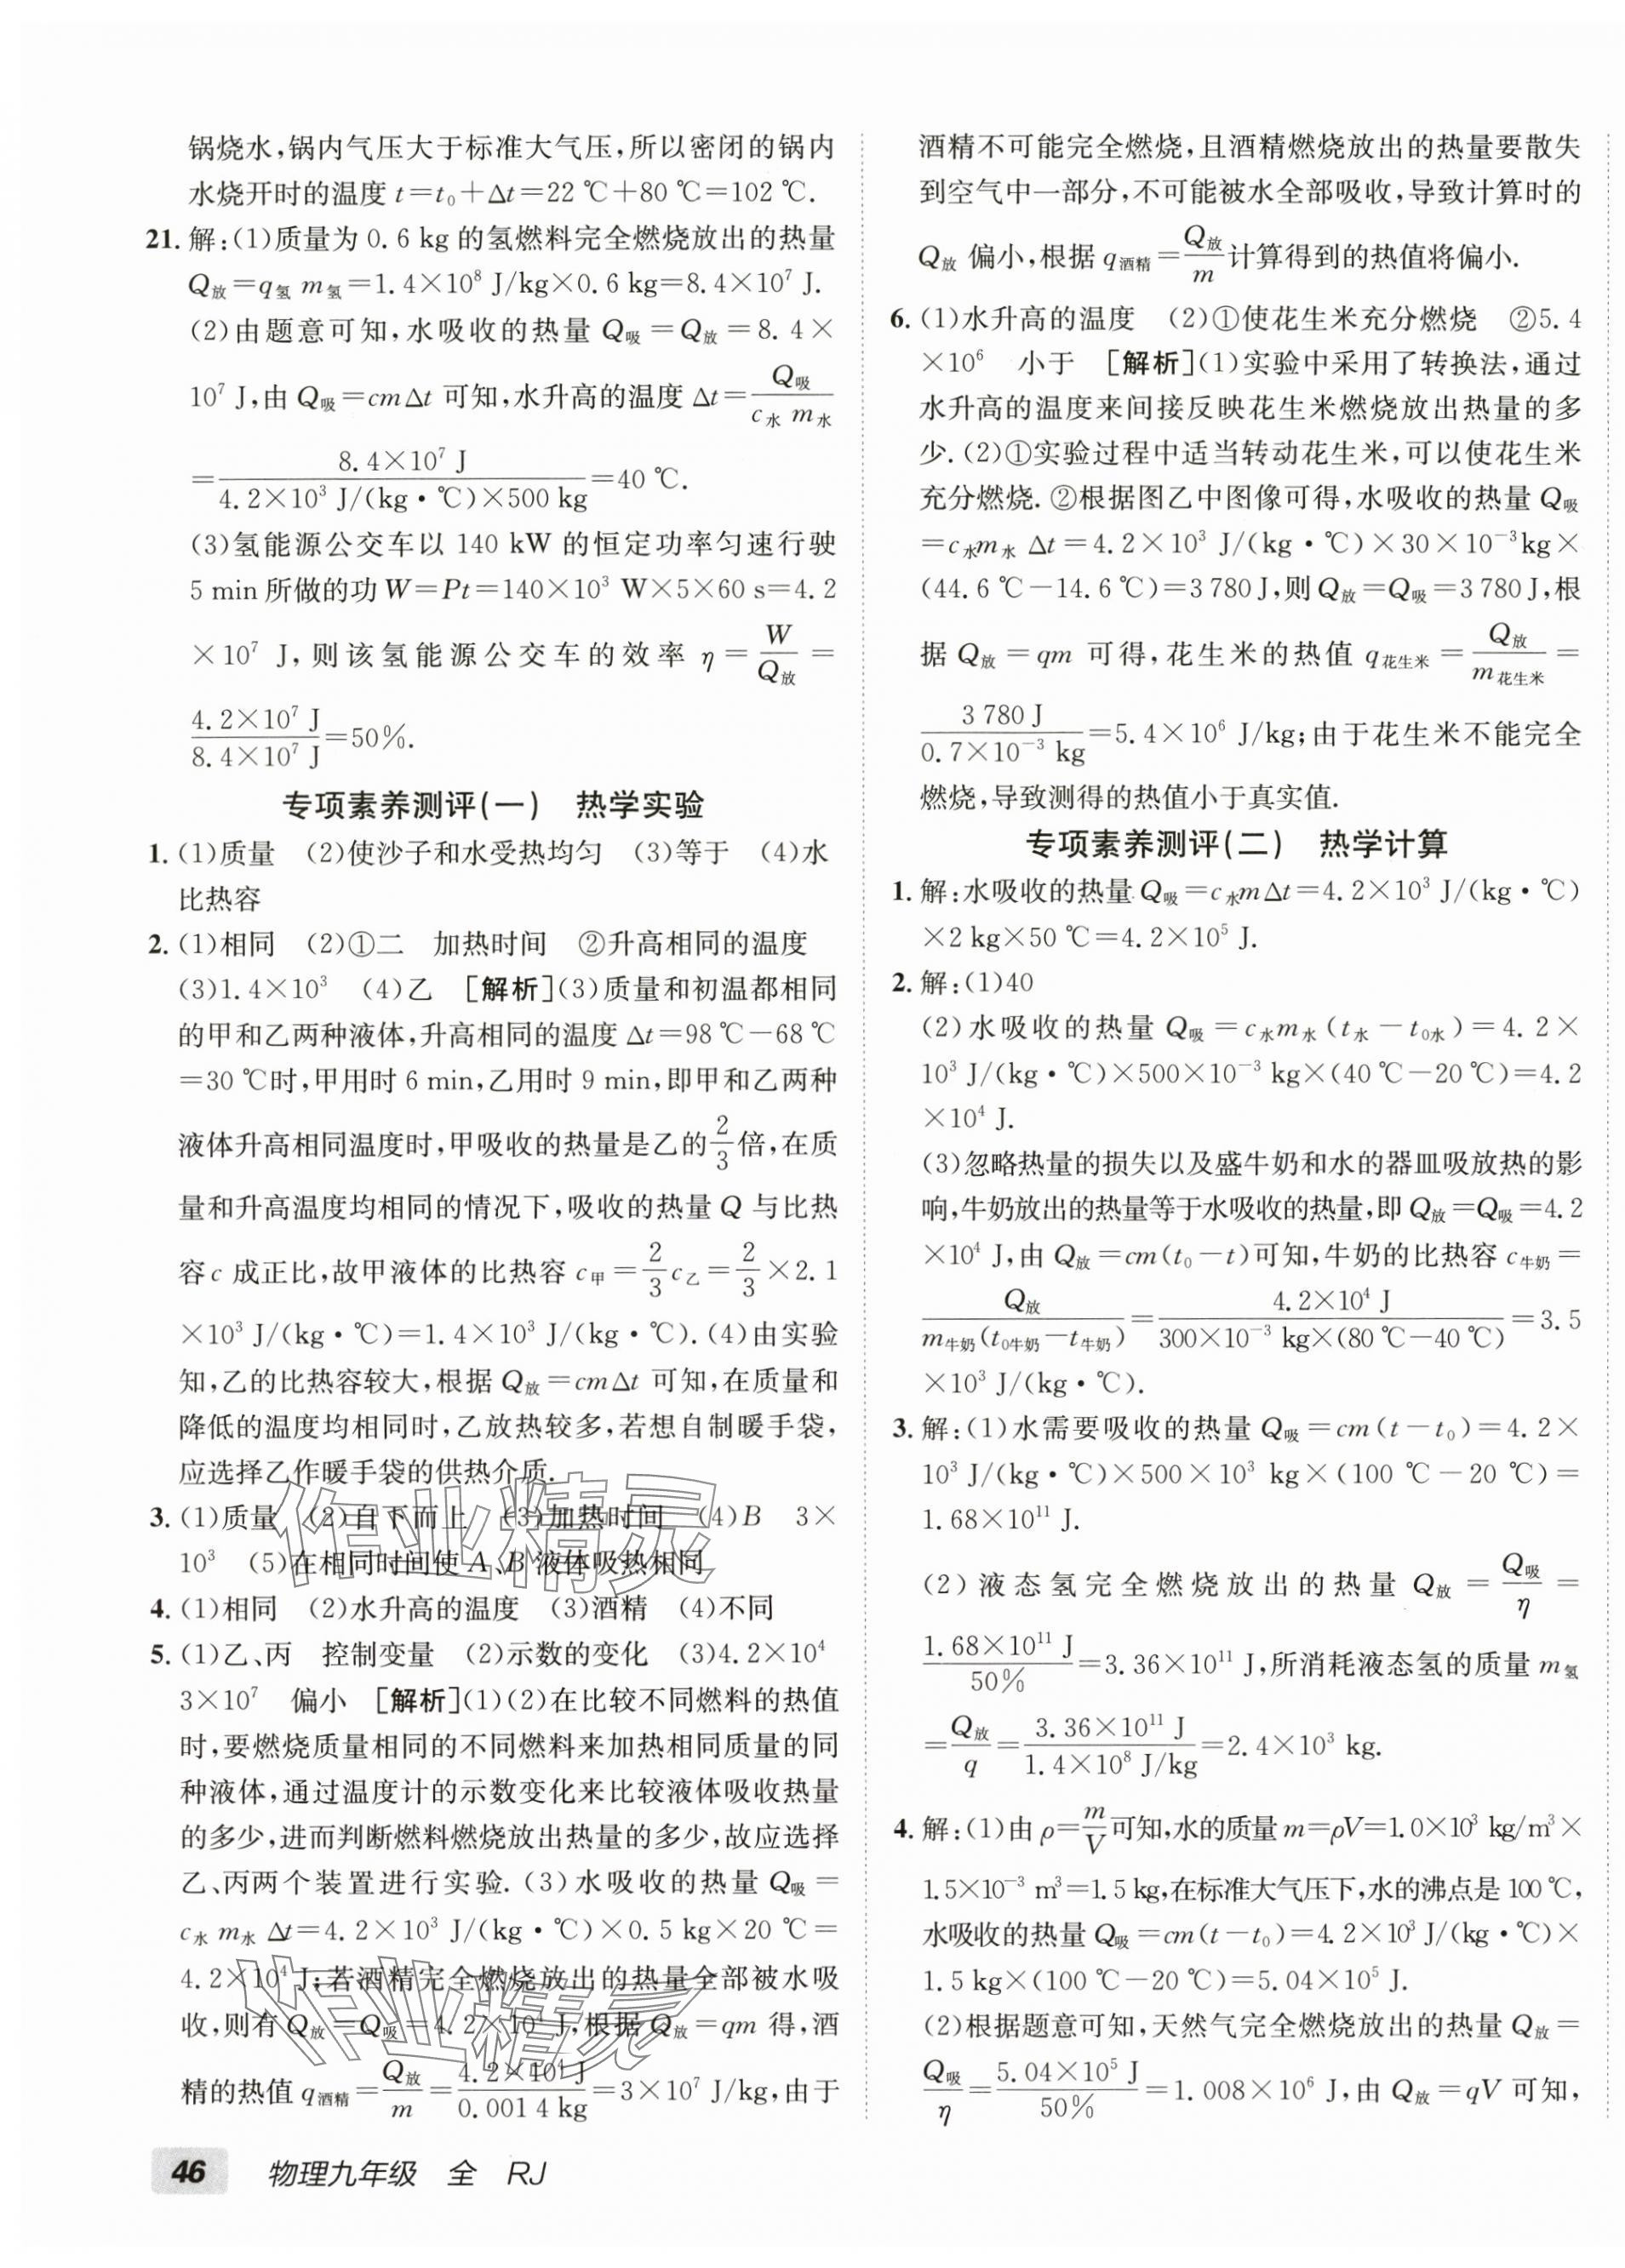 锅烧水,锅内气压大于标准大气压,所以密闭的锅内
水烧开时的温度 t=t₀+Δt=22 ℃+80 ℃=102 ℃.
21. 解:(1)质量为 0.6 kg 的氢燃料完全燃烧放出的热量
Q放=q氢 m氢=1.4×10⁸ J/kg×0.6 kg=8.4×10⁷ J.
(2)由题意可知,水吸收的热量 Q吸=Q放=8.4×
10⁷ J,由 Q吸=cmΔt 可知,水升高的温度 Δt=Q吸/(c水 m水)
=8.4×10⁷ J/(4.2×10³ J/(kg·℃)×500 kg)=40 ℃.
(3)氢能源公交车以 140 kW 的恒定功率匀速行驶
5 min 所做的功 W=Pt=140×10³ W×5×60 s=4.2
×10⁷ J,则该氢能源公交车的效率 η=W/Q放=
4.2×10⁷ J/8.4×10⁷ J=50%.
专项素养测评(一) 热学实验
1. (1)质量 (2)使沙子和水受热均匀 (3)等于 (4)水
比热容
2. (1)相同 (2)①二 加热时间 ②升高相同的温度
(3)1.4×10³ (4)乙 [解析](3)质量和初温都相同
的甲和乙两种液体,升高相同的温度 Δt=98 ℃-68 ℃
=30 ℃时,甲用时 6 min,乙用时 9 min,即甲和乙两种
液体升高相同温度时,甲吸收的热量是乙的2/3倍,在质
量和升高温度均相同的情况下,吸收的热量 Q 与比热
容 c 成正比,故甲液体的比热容 c甲=2/3c乙=2/3×2.1
×10³ J/(kg·℃)=1.4×10³ J/(kg·℃).(4)由实验
知,乙的比热容较大,根据 Q放=cmΔt 可知,在质量和
降低的温度均相同时,乙放热较多,若想自制暖手袋,
应选择乙作暖手袋的供热介质.
3. (1)质量 (2)自下而上 (3)加热时间 (4)B 3×
10³ (5)在相同时间使 A、B 液体吸热相同
4. (1)相同 (2)水升高的温度 (3)酒精 (4)不同
5. (1)乙、丙 控制变量 (2)示数的变化 (3)4.2×10⁴
3×10⁷ 偏小 [解析](1)(2)在比较不同燃料的热值
时,要燃烧质量相同的不同燃料来加热相同质量的同
种液体,通过温度计的示数变化来比较液体吸收热量
的多少,进而判断燃料燃烧放出热量的多少,故应选择
乙、丙两个装置进行实验.(3)水吸收的热量 Q吸=
c水 m水 Δt=4.2×10³ J/(kg·℃)×0.5 kg×20 ℃=
4.2×10⁴ J;若酒精完全燃烧放出的热量全部被水吸
收,则有 Q放=Q吸=4.2×10⁴ J,根据 Q放=qm 得,酒
精的热值 q酒精=Q放/m=4.2×10⁴ J/0.001 4 kg=3×10⁷ J/kg,由于
酒精不可能完全燃烧,且酒精燃烧放出的热量要散失
到空气中一部分,不可能被水全部吸收,导致计算时的
Q放 偏小,根据 q酒精=Q放/m计算得到的热值将偏小.
6. (1)水升高的温度 (2)①使花生米充分燃烧 ②5.4
×10⁶ 小于 [解析](1)实验中采用了转换法,通过
水升高的温度来间接反映花生米燃烧放出热量的多
少.(2)①实验过程中适当转动花生米,可以使花生米
充分燃烧.②根据图乙中图像可得,水吸收的热量 Q吸
=c水m水 Δt=4.2×10³ J/(kg·℃)×30×10⁻³kg×
(44.6 ℃-14.6 ℃)=3 780 J,则 Q放=Q吸=3 780 J,根
据 Q放=qm 可得,花生米的热值 q花生米=Q放/m花生米=
3 780 J/0.7×10⁻³ kg=5.4×10⁶ J/kg;由于花生米不能完全
燃烧,导致测得的热值小于真实值.
专项素养测评(二) 热学计算
1. 解:水吸收的热量 Q吸=c水mΔt=4.2×10³ J/(kg·℃)
×2 kg×50 ℃=4.2×10⁵ J.
2. 解:(1)40
(2)水吸收的热量 Q吸=c水m水(t水-t0水)=4.2×
10³ J/(kg·℃)×500×10⁻³ kg×(40 ℃-20 ℃)=4.2
×10⁴ J.
(3)忽略热量的损失以及盛牛奶和水的器皿吸放热的影
响,牛奶放出的热量等于水吸收的热量,即 Q放=Q吸=4.2
×10⁴ J,由 Q放=cm(t₀-t)可知,牛奶的比热容 c牛奶=
Q放/(m牛奶(t0牛奶-t牛奶))=4.2×10⁴ J/(300×10⁻³ kg×(80 ℃-40 ℃))=3.5
×10³ J/(kg·℃).
3. 解:(1)水需要吸收的热量 Q吸=cm(t-t₀)=4.2×
10³ J/(kg·℃)×500×10³ kg×(100 ℃-20 ℃)=
1.68×10¹¹ J.
(2)液态氢完全燃烧放出的热量 Q放=Q吸/η=
1.68×10¹¹ J/50%=3.36×10¹¹ J,所消耗液态氢的质量 m氢
=Q放/q=3.36×10¹¹ J/1.4×10⁸ J/kg=2.4×10³ kg.
4. 解:(1)由 ρ=m/V可知,水的质量 m=ρV=1.0×10³ kg/m³×
1.5×10⁻³ m³=1.5 kg,在标准大气压下,水的沸点是 100 ℃,
水吸收的热量 Q吸=cm(t-t₀)=4.2×10³ J/(kg·℃)×
1.5 kg×(100 ℃-20 ℃)=5.04×10⁵ J.
(2)根据题意可知,天然气完全燃烧放出的热量 Q放=
Q吸/η=5.04×10⁵ J/50%=1.008×10⁶ J,由 Q放=qV 可知,
作业精灵
作业精灵
46 物理九年级 全 RJ